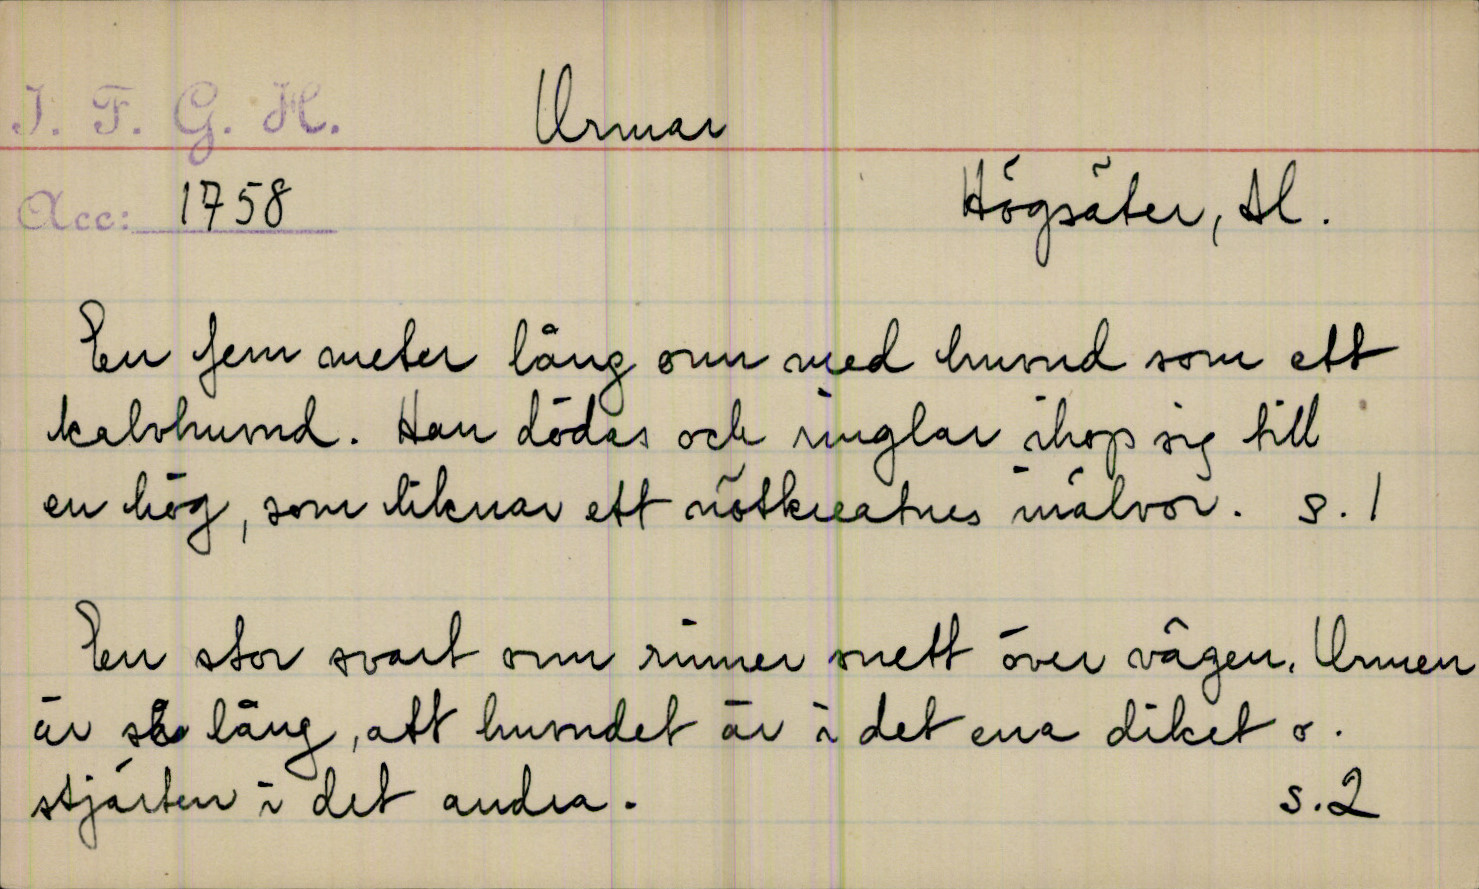 I. F. G. H.
Ormar
Acc: 1758
Högsäter, Dl.
En fem meter lång orm med huvud som ett
kalvhuvud. Han dödas och ringlar ihop sig till
en hög, som liknar ett nötkreaturs inälvor. s. 1
En stor svart orm rinner snett över vägen. Ormen
är så lång, att huvudet är i det ena diket o.
stjärten i det andra. s. 2